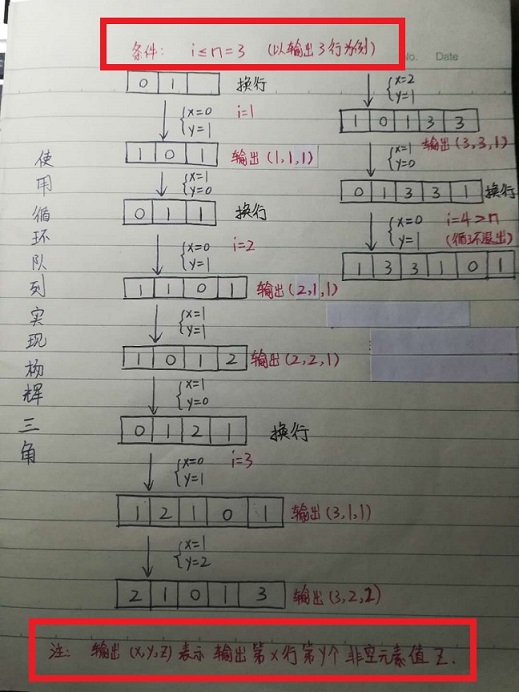 条件: i≤n=3 (以输出3行为例)
No. Date
使用循环队列实现杨辉三角
0 1 换行
x=0
y=1
i=1
1 0 1 输出(1,1,1)
x=1
y=0
0 1 1 换行
x=0
y=1
i=2
1 1 0 1 输出(2,1,1)
x=1
y=1
1 0 1 2 输出(2,2,1)
x=1
y=0
0 1 2 1 换行
x=0
y=1
i=3
1 2 1 0 1 输出(3,1,1)
x=1
y=2
2 1 0 1 3 输出(3,2,2)
x=2
y=1
1 0 1 3 3
输出(3,3,1)
x=1
y=0
0 1 3 3 1 换行
x=0
y=1
i=4>n
(循环退出)
1 3 3 1 0 1
注: 输出(x,y,z)表示输出第x行第y个非空元素值z.